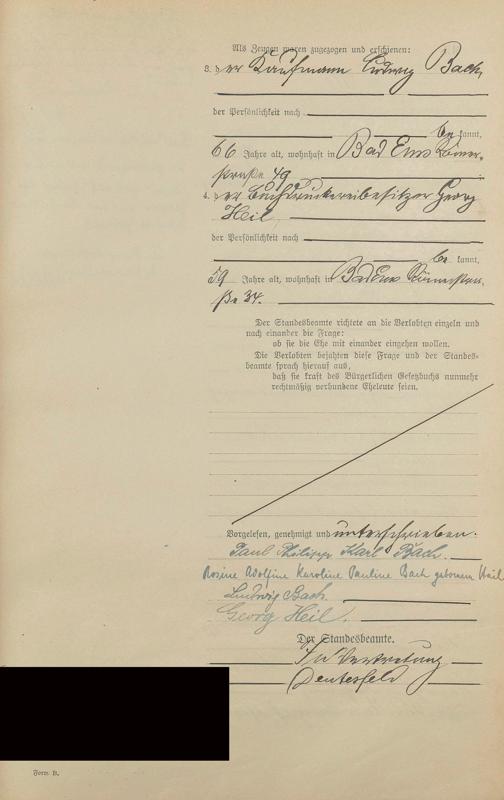 Als Zeugen waren zugezogen und erschienen:
3. der Kaufmann Ludwig Bach,
der Persönlichkeit nach
be kannt,
66 Jahre alt, wohnhaft in Bad Ems Römer-
straße 49
4. der Buchdruckereibesitzer Georg
Heil
der Persönlichkeit nach
be kannt,
59 Jahre alt, wohnhaft in Bad Ems Römerstra-
ße 34.
Der Standesbeamte richtete an die Verlobten einzeln und
nach einander die Frage:
ob sie die Ehe mit einander eingehen wollen.
Die Verlobten bejahten diese Frage und der Standes-
beamte sprach hierauf aus,
daß sie kraft des Bürgerlichen Gesetzbuchs nunmehr
rechtmäßig verbundene Eheleute seien.
Vorgelesen, genehmigt und unterschrieben.
Paul Philipp Karl Bach.
Rosine Adolfine Karoline Pauline Bach geborenen Heil
Ludwig Bach.
Georg Heil.
Der Standesbeamte.
In Vertretung
Form B.